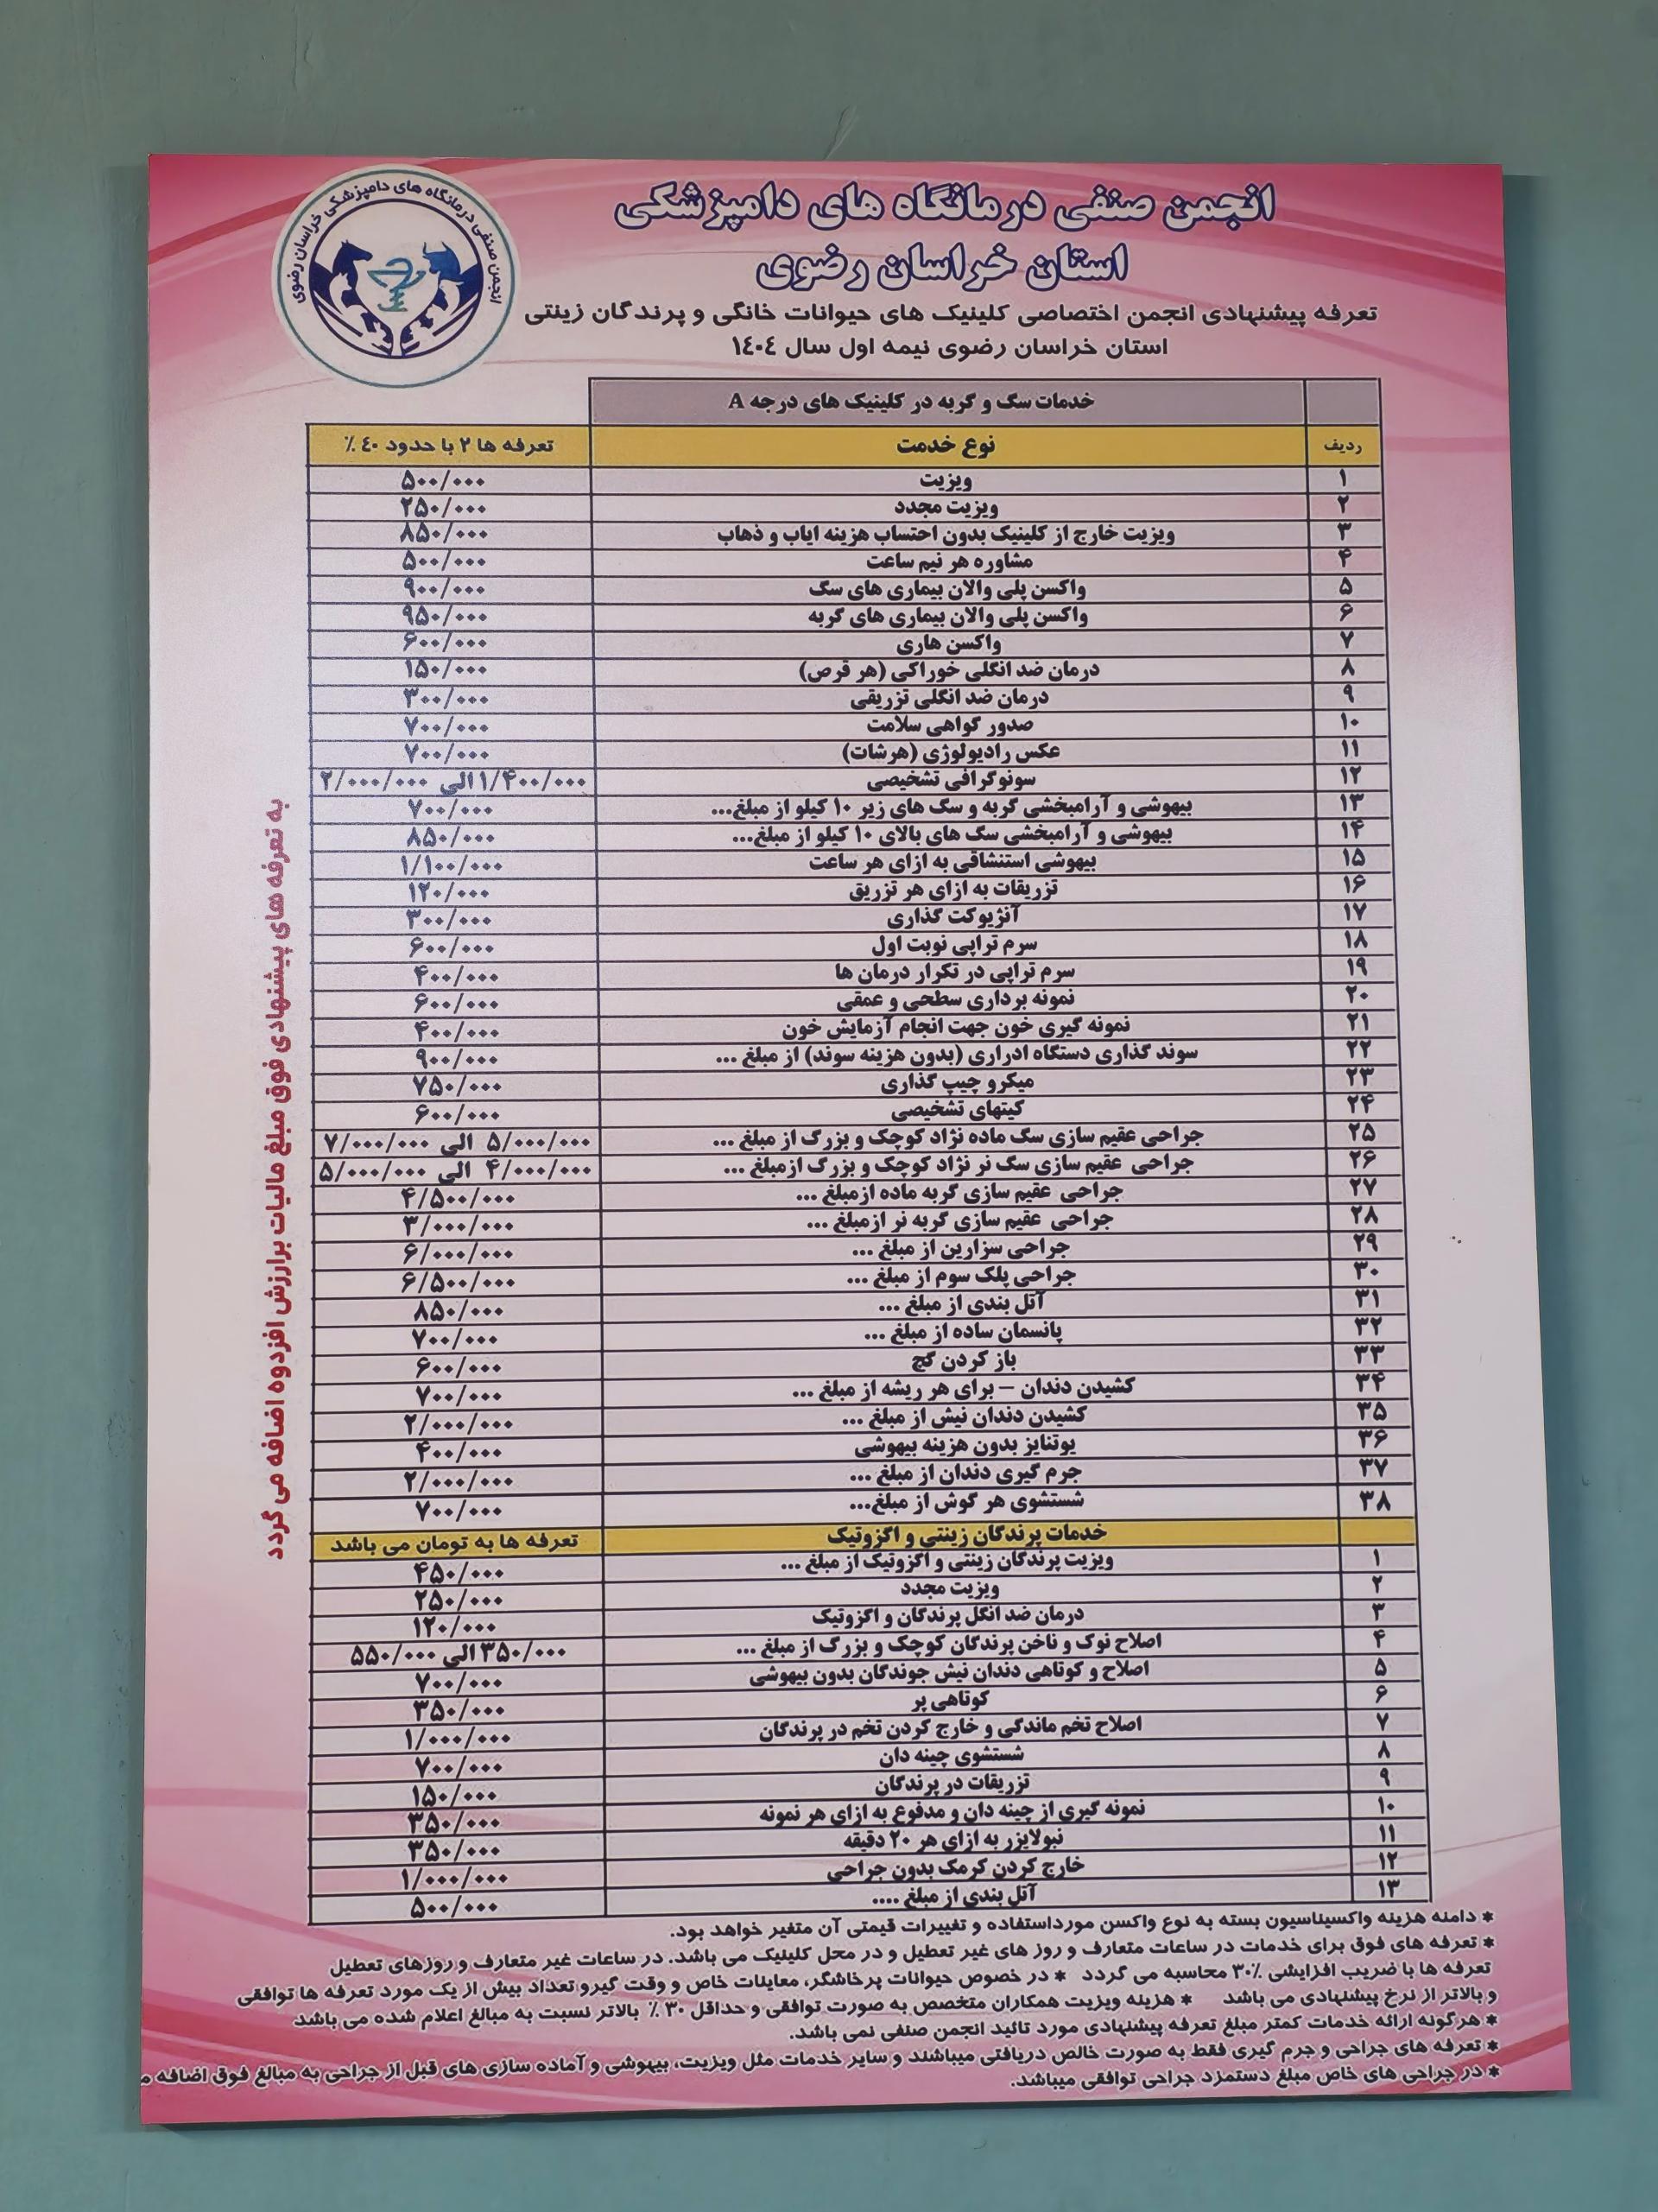 انجمن صنفی درمانگاه های دامپزشکی
استان خراسان رضوی
انجمن صنفی درمانگاه های دامپزشکی خراسان رضوی
تعرفه پیشنهادی انجمن اختصاصی کلینیک های حیوانات خانگی و پرندگان زینتی
استان خراسان رضوی نیمه اول سال ١٤٠٤
خدمات سگ و گربه در کلینیک های درجه A
ردیف نوع خدمت تعرفه ها ۲ با حدود ٤٠ ٪
۱ ویزیت ۵۰۰/۰۰۰
۲ ویزیت مجدد ۲۵۰/۰۰۰
۳ ویزیت خارج از کلینیک بدون احتساب هزینه ایاب و ذهاب ۸۵۰/۰۰۰
۴ مشاوره هر نیم ساعت ۵۰۰/۰۰۰
۵ واکسن پلی والان بیماری های سگ ۹۰۰/۰۰۰
۶ واکسن پلی والان بیماری های گربه ۹۵۰/۰۰۰
۷ واکسن هاری ۶۰۰/۰۰۰
۸ درمان ضد انگلی خوراکی (هر قرص) ۱۵۰/۰۰۰
۹ درمان ضد انگلی تزریقی ۳۰۰/۰۰۰
۱۰ صدور گواهی سلامت ۷۰۰/۰۰۰
۱۱ عکس رادیولوژی (هرشات) ۷۰۰/۰۰۰
۱۲ سونوگرافی تشخیصی ۱/۴۰۰/۰۰۰ الی ۲/۰۰۰/۰۰۰
۱۳ بیهوشی و آرامبخشی گربه و سگ های زیر ۱۰ کیلو از مبلغ... ۷۰۰/۰۰۰
۱۴ بیهوشی و آرامبخشی سگ های بالای ۱۰ کیلو از مبلغ... ۸۵۰/۰۰۰
۱۵ بیهوشی استنشاقی به ازای هر ساعت ۱/۱۰۰/۰۰۰
۱۶ تزریقات به ازای هر تزریق ۱۲۰/۰۰۰
۱۷ آنژیوکت گذاری ۳۰۰/۰۰۰
۱۸ سرم تراپی نوبت اول ۶۰۰/۰۰۰
۱۹ سرم تراپی در تکرار درمان ها ۴۰۰/۰۰۰
۲۰ نمونه برداری سطحی و عمقی ۶۰۰/۰۰۰
۲۱ نمونه گیری خون جهت انجام آزمایش خون ۴۰۰/۰۰۰
۲۲ سوند گذاری دستگاه ادراری (بدون هزینه سوند) از مبلغ ... ۹۰۰/۰۰۰
۲۳ میکرو چیپ گذاری ۷۵۰/۰۰۰
۲۴ کیتهای تشخیصی ۶۰۰/۰۰۰
۲۵ جراحی عقیم سازی سگ ماده نژاد کوچک و بزرگ از مبلغ ... ۵/۰۰۰/۰۰۰ الی ۷/۰۰۰/۰۰۰
۲۶ جراحی عقیم سازی سگ نر نژاد کوچک و بزرگ ازمبلغ ... ۴/۰۰۰/۰۰۰ الی ۵/۰۰۰/۰۰۰
۲۷ جراحی عقیم سازی گربه ماده ازمبلغ ... ۴/۵۰۰/۰۰۰
۲۸ جراحی عقیم سازی گربه نر ازمبلغ ... ۳/۰۰۰/۰۰۰
۲۹ جراحی سزارین از مبلغ ... ۶/۰۰۰/۰۰۰
۳۰ جراحی پلک سوم از مبلغ ... ۶/۵۰۰/۰۰۰
۳۱ آتل بندی از مبلغ ... ۸۵۰/۰۰۰
۳۲ پانسمان ساده از مبلغ ... ۷۰۰/۰۰۰
۳۳ باز کردن گچ ۶۰۰/۰۰۰
۳۴ کشیدن دندان – برای هر ریشه از مبلغ ... ۷۰۰/۰۰۰
۳۵ کشیدن دندان نیش از مبلغ ... ۲/۰۰۰/۰۰۰
۳۶ یوتنایز بدون هزینه بیهوشی ۴۰۰/۰۰۰
۳۷ جرم گیری دندان از مبلغ ... ۲/۰۰۰/۰۰۰
۳۸ شستشوی هر گوش از مبلغ... ۷۰۰/۰۰۰
خدمات پرندگان زینتی و اگزوتیک تعرفه ها به تومان می باشد
۱ ویزیت پرندگان زینتی و اگزوتیک از مبلغ ... ۴۵۰/۰۰۰
۲ ویزیت مجدد ۲۵۰/۰۰۰
۳ درمان ضد انگل پرندگان و اگزوتیک ۱۲۰/۰۰۰
۴ اصلاح نوک و ناخن پرندگان کوچک و بزرگ از مبلغ ... ۳۵۰/۰۰۰ الی ۵۵۰/۰۰۰
۵ اصلاح و کوتاهی دندان نیش جوندگان بدون بیهوشی ۷۰۰/۰۰۰
۶ کوتاهی پر ۳۵۰/۰۰۰
۷ اصلاح تخم ماندگی و خارج کردن تخم در پرندگان ۱/۰۰۰/۰۰۰
۸ شستشوی چینه دان ۷۰۰/۰۰۰
۹ تزریقات در پرندگان ۱۵۰/۰۰۰
۱۰ نمونه گیری از چینه دان و مدفوع به ازای هر نمونه ۳۵۰/۰۰۰
۱۱ نبولایزر به ازای هر ۲۰ دقیقه ۳۵۰/۰۰۰
۱۲ خارج کردن کرمک بدون جراحی ۱/۰۰۰/۰۰۰
۱۳ آتل بندی از مبلغ .... ۵۰۰/۰۰۰
به تعرفه های پیشنهادی فوق مبلغ مالیات برارزش افزدوه اضافه می گردد
* دامنه هزینه واکسیناسیون بسته به نوع واکسن مورداستفاده و تغییرات قیمتی آن متغیر خواهد بود.
* تعرفه های فوق برای خدمات در ساعات متعارف و روز های غیر تعطیل و در محل کلینیک می باشد. در ساعات غیر متعارف و روزهای تعطیل
تعرفه ها با ضریب افزایشی ۳۰٪ محاسبه می گردد * در خصوص حیوانات پرخاشگر، معاینات خاص و وقت گیرو تعداد بیش از یک مورد تعرفه ها توافقی
و بالاتر از نرخ پیشنهادی می باشد * هزینه ویزیت همکاران متخصص به صورت توافقی و حداقل ۳۰ ٪ بالاتر نسبت به مبالغ اعلام شده می باشد
* هرگونه ارائه خدمات کمتر مبلغ تعرفه پیشنهادی مورد تائید انجمن صنفی نمی باشد.
* تعرفه های جراحی و جرم گیری فقط به صورت خالص دریافتی میباشند و سایر خدمات مثل ویزیت، بیهوشی و آماده سازی های قبل از جراحی به مبالغ فوق اضافه م
* در جراحی های خاص مبلغ دستمزد جراحی توافقی میباشد.